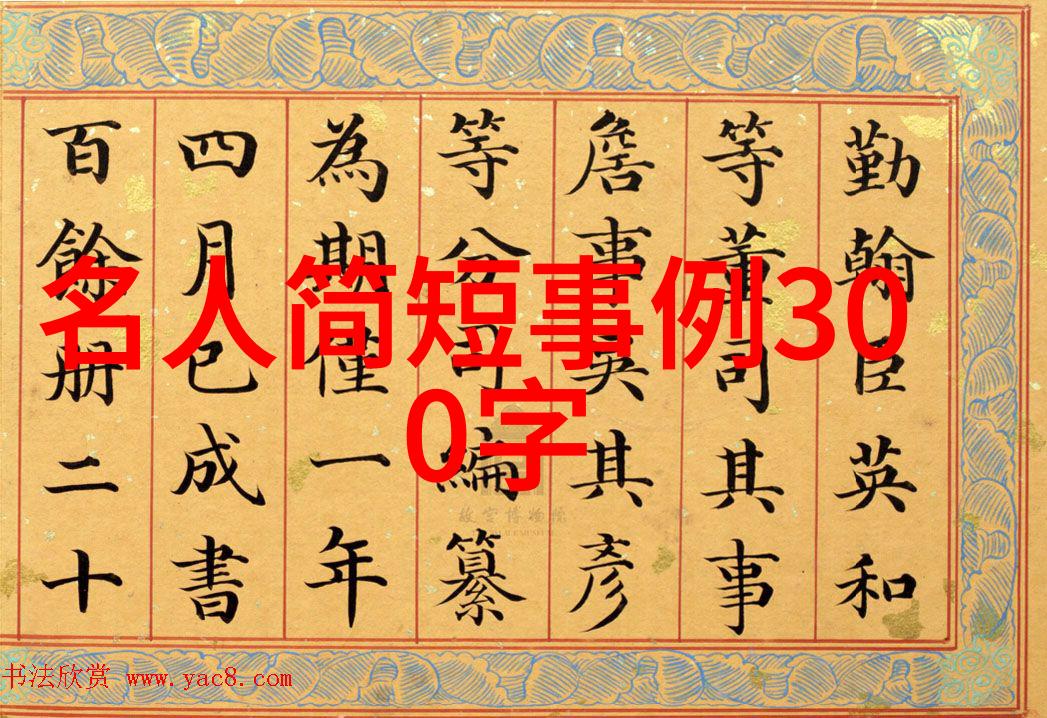 勤翰臣英和
等董司其事
詹事吳其彥
等分司編纂
為期僅一年
四月已成書
百餘册二十
名人简短事例30
0字
故宫博物院
书法欣赏 www.yac8.com